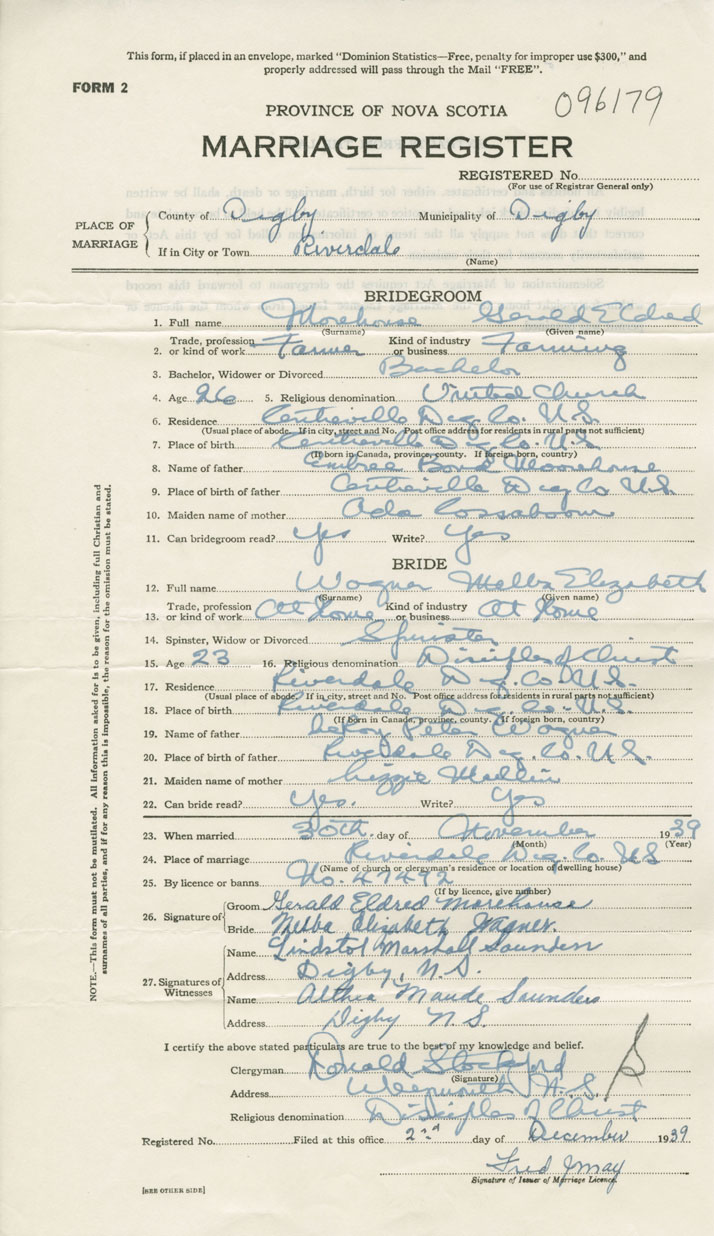 This form, if placed in an envelope, marked "Dominion Statistics—Free, penalty for improper use $300," and
properly addressed will pass through the Mail "FREE".
FORM 2
096179
PROVINCE OF NOVA SCOTIA
MARRIAGE REGISTER
REGISTERED No.
(For use of Registrar General only)
PLACE OF MARRIAGE
County of Digby Municipality of Digby
If in City or Town Riverdale
(Name)
BRIDEGROOM
1. Full name Morehouse Gerald Eldred
(Surname) (Given name)
2. Trade, profession or kind of work Farmer Kind of industry or business Farming
3. Bachelor, Widower or Divorced Bachelor
4. Age 26 5. Religious denomination United Church
6. Residence Centreville Dig. Co. N.S.
(Usual place of abode. If in city, street and No. Post office address for residents in rural parts not sufficient)
7. Place of birth Centreville Dig. Co. N.S.
(If born in Canada, province, county. If foreign born, country)
8. Name of father Embree Bond Moorehouse
9. Place of birth of father Centreville Dig Co N.S.
10. Maiden name of mother Ada Cossaboom
11. Can bridegroom read? Yes Write? Yes
BRIDE
12. Full name Wagner Melba Elizabeth
(Surname) (Given name)
13. Trade, profession or kind of work At Home Kind of industry or business At Home
14. Spinster, Widow or Divorced Spinster
15. Age 23 16. Religious denomination Disciples of Christ
17. Residence Riverdale Dig. Co. N.S.
(Usual place of abode. If in city, street and No. Post office address for residents in rural parts not sufficient)
18. Place of birth Riverdale Dig. Co. N.S.
(If born in Canada, province, county. If foreign born, country)
19. Name of father LeRoy Peter Wagner
20. Place of birth of father Riverdale Dig. Co. N.S.
21. Maiden name of mother Lizzie
22. Can bride read? Yes. Write? Yes
23. When married 30th day of November 1939
(Month) (Year)
24. Place of marriage Riverdale Dig. Co. N.S
(Name of church or clergyman's residence or location of dwelling house)
25. By licence or banns No. 47492
(If by licence, give number)
26. Signature of
Groom Gerald Eldred Morehouse
Bride Melba Elizabeth Wagner.
27. Signatures of Witnesses
Name Marshall Saunders
Address Digby, N.S.
Name Althea Maude Saunders
Address Digby N.S.
I certify the above stated particulars are true to the best of my knowledge and belief.
Clergyman Ronald Stockford
(Signature)
Address N.S.
Religious denomination Disciples of Christ
Registered No. Filed at this office 2nd day of December 1939
Fred Jmay
Signature of Issuer of Marriage Licence.
[SEE OTHER SIDE]
NOTE.—This form must not be mutilated. All Information asked for is to be given, including full Christian and
surnames of all parties, and if for any reason this is impossible, the reason for the omission must be stated.